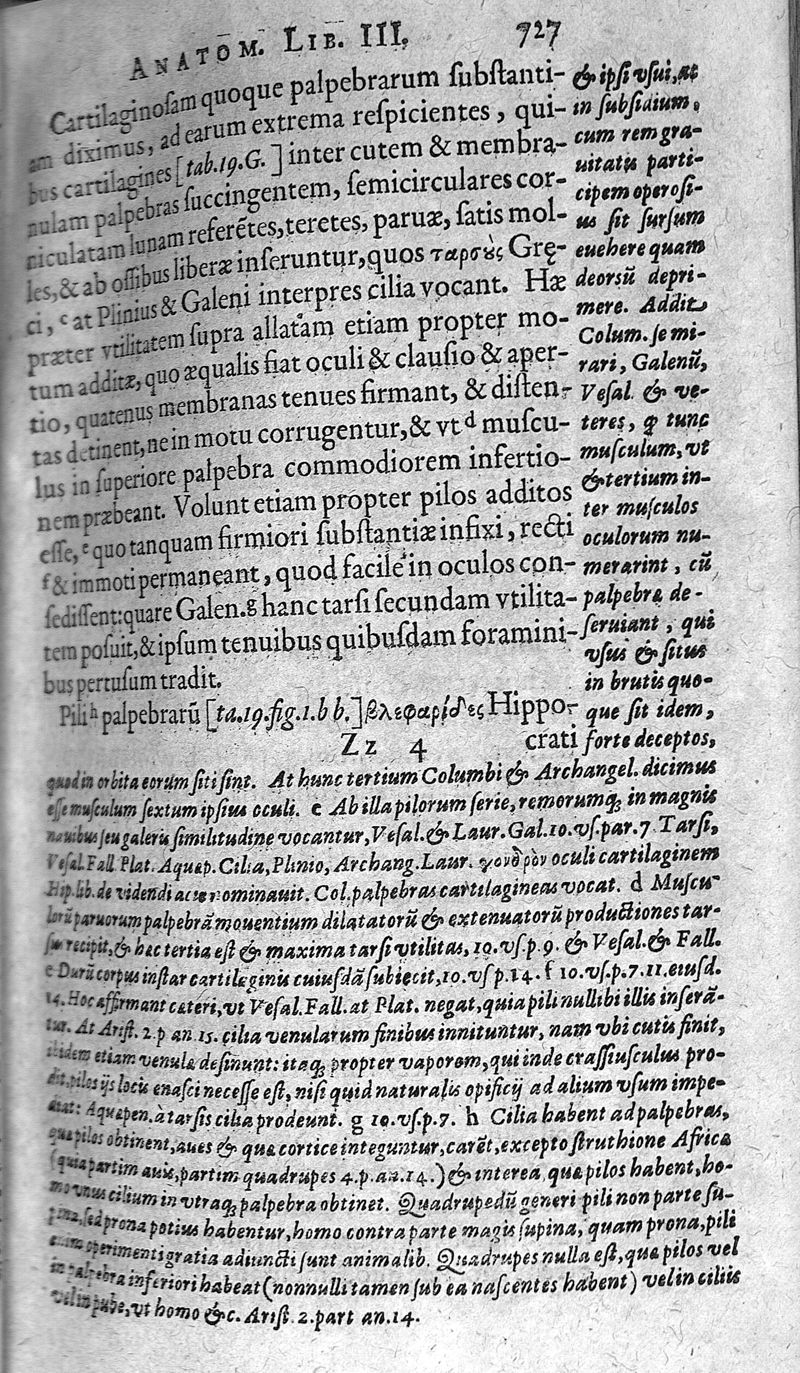 ANATOM. LIB. III. 727
Cartilaginosam quoque palpebrarum substanti-
am diximus, ad earum extrema respicientes, qui-
bus cartilagines [tab.19.G.] inter cutem & membra-
nulam palpebras succingentem, semicirculares cor-
niculatam lunam referẽtes, teretes, paruæ, satis mol-
les, & ab ossibus liberæ inseruntur, quos ταρσοὺς Gręi-
ci, c at Plinius & Galeni interpres cilia vocant. Hæ
præter vtilitatem supra allatam etiam propter mo-
tum additæ, quo æqualis fiat oculi & clausio & aper-
tio, quatenus membranas tenues firmant, & disten-
tas detinent, ne in motu corrugentur, & vt d muscu-
lus in superiore palpebra commodiorem insertio-
nem præbeant. Volunt etiam propter pilos additos
esse, e quo tanquam firmiori substantiæ infixi, recti
f & immoti permaneant, quod facile in oculos con-
sedissent: quare Galen. g hanc tarsi secundam vtilita-
tem posuit, & ipsum tenuibus quibusdam foramini-
bus pertusum tradit.
Pili h palpebrarũ [ta.19.fig.1.b b.] βλεφαρίδες Hippo-
Zz 4 crati
& ipsi vsui, at
in subsidium,
cum rem gra-
uitatis parti-
cipem operosi-
us sit sursum
euehere quam
deorsũ depri-
mere. Addit
Colum. se mi-
rari, Galenũ,
Vesal. & ve-
teres, ꝙ tunc
musculum, vt
& tertium in-
ter musculos
oculorum nu-
merarint, cũ
palpebræ de-
seruiant, qui
vsus & situs
in brutis quo-
que sit idem,
forte deceptos,
quod in orbita eorum siti sint. At hunc tertium Columbi & Archangel. dicimus
esse musculum sextum ipsius oculi. c Ab illa pilorum serie, remorumq; in magnis
nauibus seu galeris similitudine vocantur, Vesal. & Laur. Gal. 10. vs. par. 7. Tarsi,
Vesal. Fall. Plat. Aquap. Cilia, Plinio, Archang. Laur. χονδρὸν oculi cartilaginem
Hip. lib. de videndi acie nominauit. Col. palpebras cartilagineas vocat. d Muscu-
lorũ paruorum palpebrã mouentium dilatatorũ & extenuatorũ productiones tar-
sus recipit, & hæc tertia est & maxima tarsi vtilitas, 10. vs p. 9. & Vesal. & Fall.
e Durũ corpus instar cartilaginis cuiusdã subiecit, 10. vs p. 14. f 10. vs. p. 7. 11. eiusd.
14. Hoc affirmant cæteri, vt Vesal. Fall. at Plat. negat, quia pili nullibi illis inserã-
tur. At Arist. 2. p an. 15. cilia venularum finibus innituntur, nam vbi cutis finit,
ibidem etiam venulæ desinunt: itaq; propter vaporem, qui inde crassiusculus pro-
dit, pilos ijs locis enasci necesse est, nisi quid naturalis opificij ad alium vsum impe-
diat: Aquapen. à tarsis cilia prodeunt. g 10. vs. p. 7. h Cilia habent ad palpebras,
quæ pilos obtinent, aues & quæ cortice integuntur, carẽt, excepto struthione Africæ
(quia partim auis, partim quadrupes 4. p. an. 14.) & interea, quæ pilos habent, ho-
mo vnus cilium in vtraq; palpebra obtinet. Quadrupedũ generi pili non parte su-
pina, sed prona potius habentur, homo contra parte magis supina, quam prona, pili
enim operimenti gratia adiuncti sunt animalib. Quadrupes nulla est, quæ pilos vel
in palpebra inferiori habeat (nonnulli tamen sub ea nascentes habent) vel in ciliis
vel in pube, vt homo &c. Arist. 2. part an. 14.